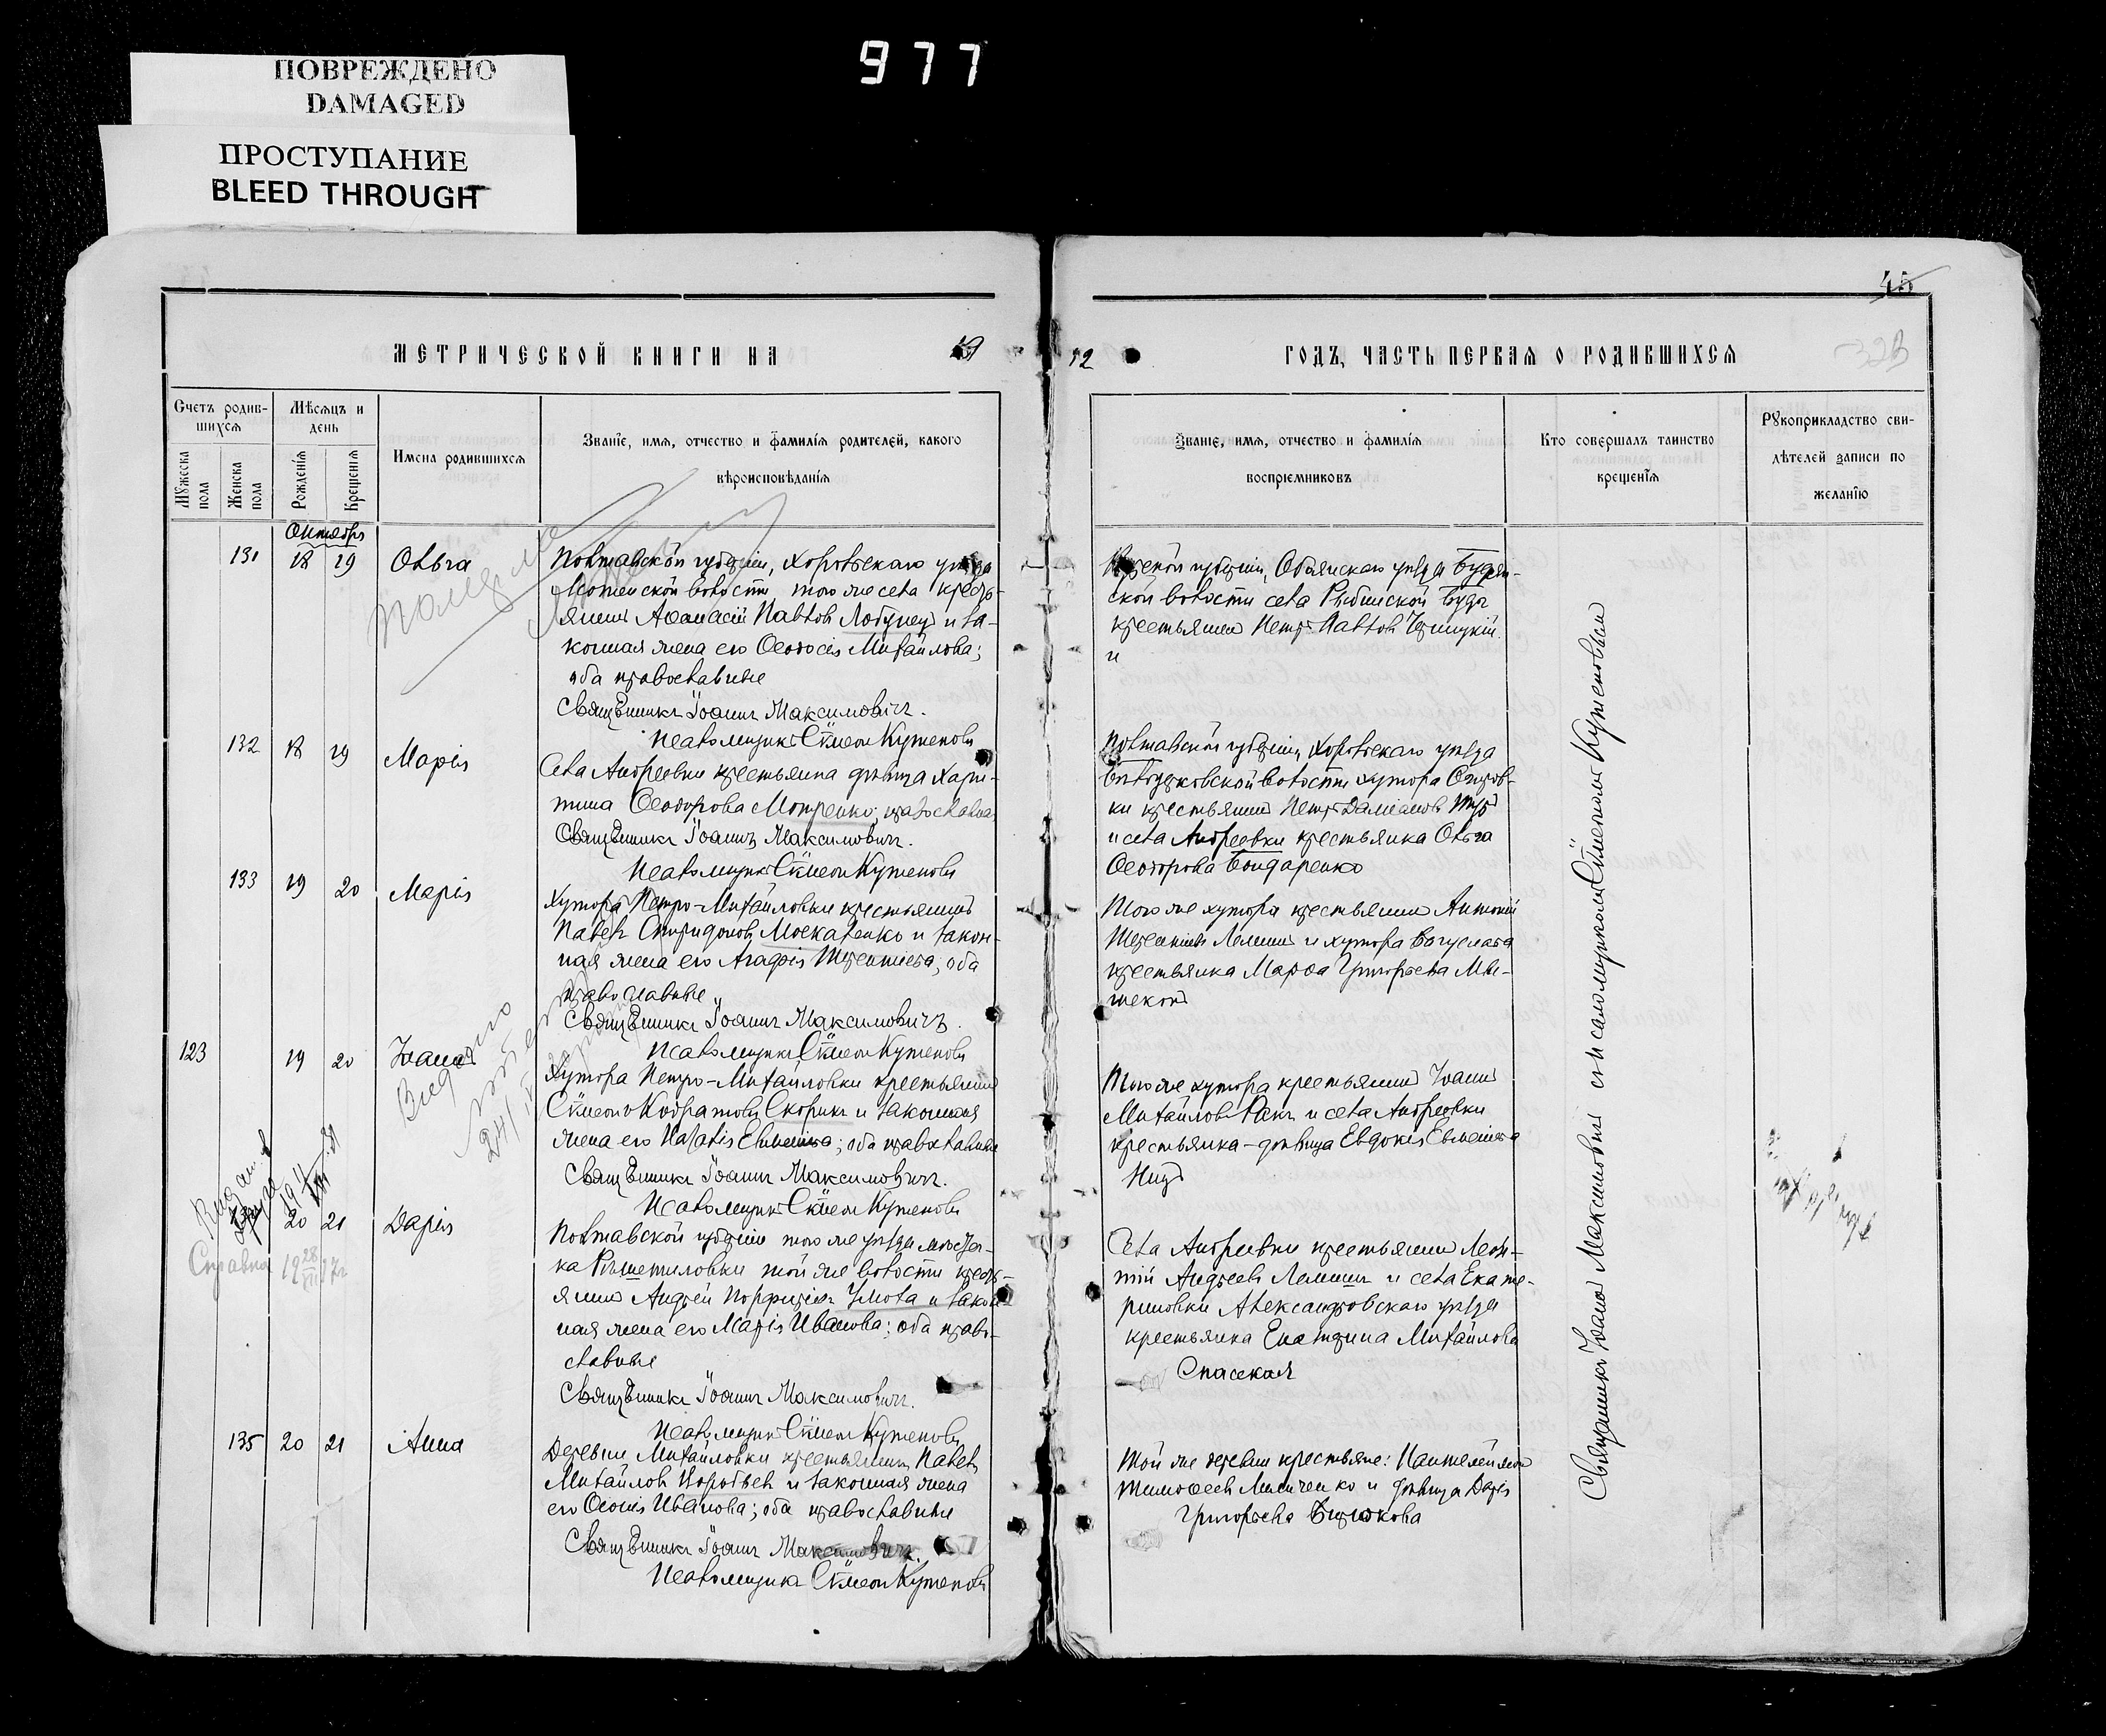 977
ПОВРЕЖДЕНО
DAMAGED
ПРОСТУПАНИЕ
BLEED THROUGH
45
МЕТРИЧЕСКОЙ КНИГИ НА 19
12 ГОДЪ, ЧАСТЬ ПЕРВАЯ О РОДИВШИХСЯ
Счетъ родив-
шихся
Мужеска пола
Женска пола
Мѣсяцъ и
день
Рожденія
Крещенія
Имена родившихся
Званіе, имя, отчество и фамилія родителей, какого
вѣроисповѣданія
Званіе, имя, отчество и фамилія
воспріемниковъ
Кто совершалъ таинство
крещенія
Рукоприкладство сви-
дѣтелей записи по
желанію
Октябрь
131 18 19 Ольга
Полтавской губерніи, Хорольскаго уѣзда
волости, того же села кресть-
янинъ Аѳанасій Павловъ и за-
конная жена его Ѳеодосія Михайлова;
оба православные
Священникъ Іоаннъ Максимовичъ.
Псаломщикъ Сѵмеон Кутеповъ
Курской губерніи, Обоянскаго уѣзда
ской волости села Рыбинской Буды
крестьянинъ Петръ Павловъ
и
132 18 19 Марія
Села Андреевки крестьянка дѣвица Хари-
тина Ѳеодорова Мотренко; православная
Священникъ Іоаннъ Максимовичъ.
Псаломщикъ Сѵмеон Кутеповъ
Полтавской губерніи, Хорольскаго уѣзда
волости хутора
ки крестьянинъ Петръ Даміановъ
и села Андреевки крестьянка Ольга
Ѳеодорова Бондаренко
133 19 20 Марія
Хутора Петро-Михайловки крестьянинъ
Павелъ Спиридоновъ Москаленко и закон-
ная жена его Агафія Терентіева; оба
православные
Священникъ Іоаннъ Максимовичъ.
Псаломщикъ Сѵмеон Кутеповъ
Того же хутора крестьянинъ Антоній
Терентіевъ и хутора Богуслава
крестьянка Марѳа Григорьева
123 19 20 Іоаннъ
Хутора Петро-Михайловки крестьянинъ
Сѵмеонъ Кодратовъ Скорикъ и законная
жена его Наталія; оба православные
Священникъ Іоаннъ Максимовичъ.
Псаломщикъ Сѵмеон Кутеповъ
Того же хутора крестьянинъ Іоаннъ
Михайловъ Ракъ и села Андреевки
крестьянка-дѣвица Евдокія
20 21 Дарія
Полтавской губерніи того же уѣзда мѣстеч-
ка Рѣшетиловки той же волости кресть-
янинъ Андрей Порфиріевъ и закон-
ная жена его Марія Иванова; оба право-
славные
Священникъ Іоаннъ Максимовичъ.
Псаломщикъ Сѵмеон Кутеповъ
Села Андреевки крестьянинъ Леон-
тій Андреевъ и села Екате-
риновки Александровскаго уѣзда
крестьянка Екатерина Михайлова
Спасская
135 20 21 Анна
Деревни Михайловки крестьянинъ Павелъ
Михайловъ Воробьевъ и законная жена
его Ѳеонія Иванова; оба православные
Священникъ Іоаннъ Максимовичъ.
Псаломщикъ Сѵмеон Кутеповъ
Той же деревни крестьяне: Пантелеймонъ
Тимоѳеевъ и дѣвица Дарія
Григорьева Бирюкова
Священникъ Іоаннъ Максимовичъ съ псаломщикомъ Сѵмеономъ Кутеповымъ